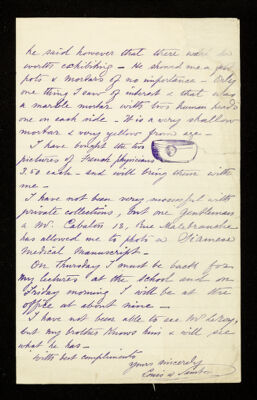 he said however that there were no
worth exhibiting - He showed me a few
pots & mortars of no importance - Only
one thing I saw of interest & that was
a marble mortar with two human heads
one on each side - It is a very shallow
mortar & very yellow from age -
I have bought the two
pictures of French physicians
3.50 each - and will bring them with
me -
I have not been very successful with
private collections, but one gentleman
a Mr. 13, Rue Malebranche
has allowed me to photo a Siamese
medical manuscript -
On Thursday I must be back for
my lectures at the school and on
Friday morning I will be at the
office at about nine -
I have not been able to see Mr
but my brother knows him & will see
what he has -
With best compliments
Yours sincerely
Louis